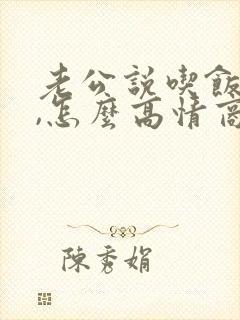 老公説喫飯
,怎麽高情商
陳秀娟